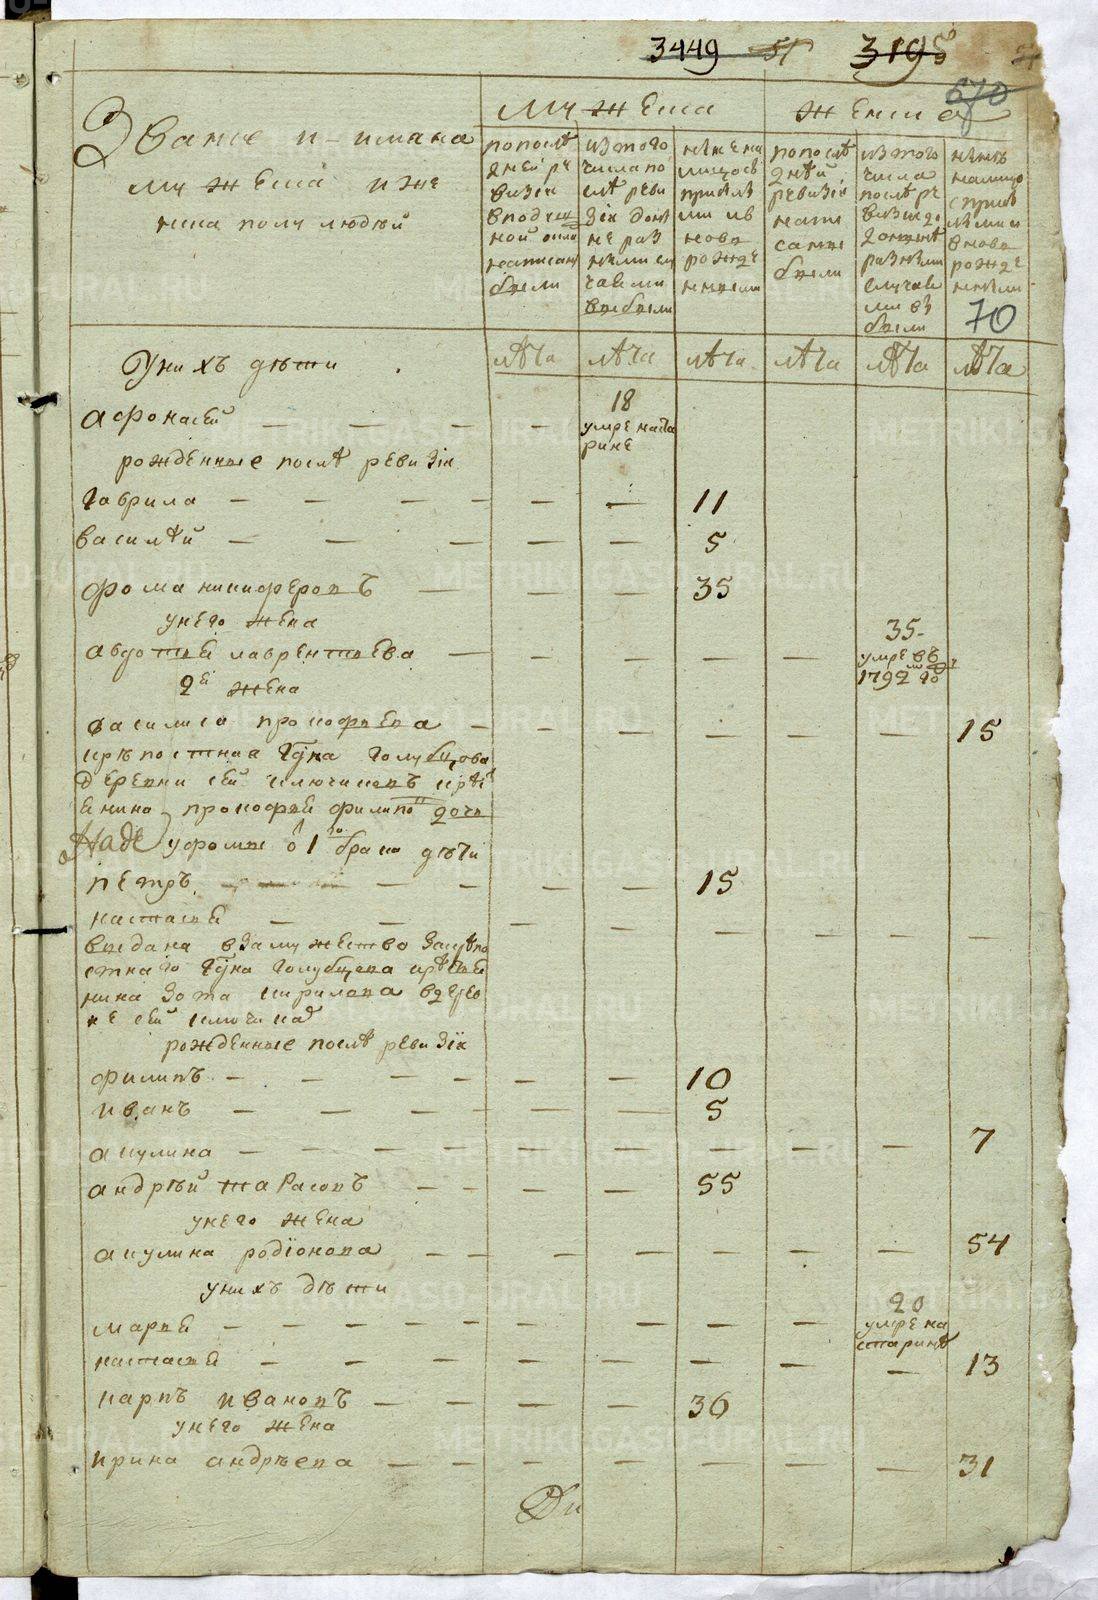 3449 51 3195
670
Званiе и имана
мужеска и же
нска полу людей
мужеска
женска
по после
дней ре
визiи
в подуш
ной окла
написан
были
из того
числа по
сле реви
зiи до ны
не раз
ными слу
чаями
выбыли
ныне на
лицо съ
прибылы
ми и в
новь
рожде
нными
по после
дней
ревизiи
напи
санны
были
из того
числа
после ре
визiи до
разными
случая
ми вы
были
ныне
налицо
с прибы
лыми и
вновь
рожде
нными
70
лѣта лѣта лѣта лѣта лѣта лѣта
У них дѣти
Афонасей — — — — 18
умре на ста
рине
рожденные послѣ ревизiи
Гаврила — — — — — 11
Василѣй — — — — — 5
Фома никифоровъ — — — 35
у него жена
Авдотьей лаврентьева — — — — — 35
умре въ
1792 го
2й жена
Василиса прокофьева — — — — — — 15
крѣпостная Гдна Голубцова
деревни сей ключиковъ кресть
янина прокофья филипо дочь
у фомы от 1го брака дѣти
Петръ — — — — 15
настасья — — — — — — — —
выдана в замужество за крѣпо
стнаго Гдна Голубцова кресть
нина Зота кирилова в дерев
не сей ключика
рожденные послѣ ревизiи
Филипъ — — — — — — 10
Иванъ — — — — — — 5
Акулина — — — — — — — — — 7
Андрѣй тарасовъ — — — — 55
у него жена
Акулина родiонова — — — — — — — 54
у них дѣти
Марья — — — — — — — — — 20
умре на
старинѣ
настасья — — — — — — — — — 13
Карпъ Ивановъ — — — — 36
у него жена
Ирина андрѣева — — — — — — — 31